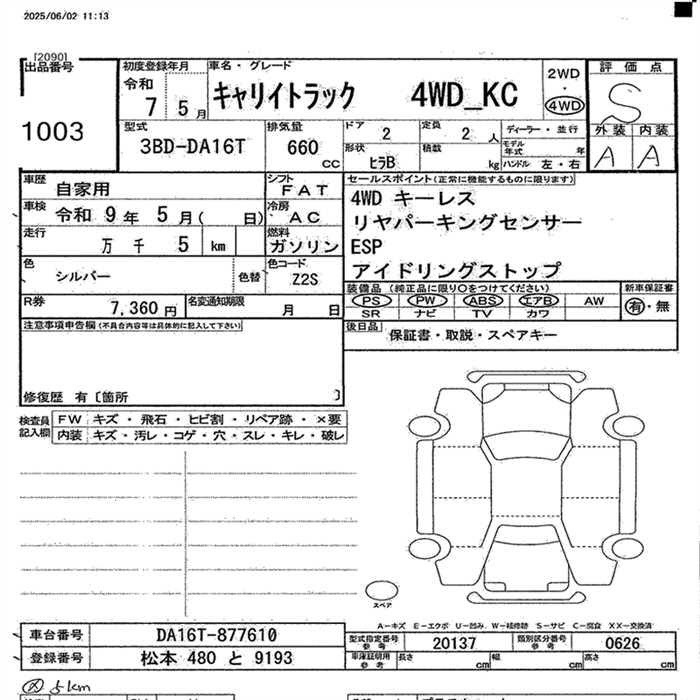 2025/06/02 11:13
[2090]
出品番号
1003
初度登録年月
令和
7 5月
車名・グレード
キャリイトラック 4WD_KC
2WD
・
4WD
評価点
S
外装 内装
A A
型式
3BD-DA16T
排気量
660
CC
ドア 2
定員 2 人
形状 ﾋﾗB
積載 kg
ディーラー・並行
モデル年式 年
ハンドル 左・右
車歴
自家用
シフト
FAT
車検
令和 9年 5月( 日)
冷房
AC
走行
万 千 5 km
燃料
ガソリン
色
シルバー
色替
色コード
Z2S
R券
7,360円
名変通知期限
月 日
セールスポイント(正常に機能するものに限ります)
4WD キーレス
リヤパーキングセンサー
ESP
アイドリングストップ
装備品 (純正品に限り○をつけてください)
PS PW ABS エアB AW
SR ナビ TV カワ
新車保証書
有・無
後日品
保証書・取説・スペアキー
注意事項申告欄(不具合内容等は具体的に記入して下さい)
修復歴 有〔箇所 〕
検査員記入欄
FW キズ・飛石・ヒビ割・リペア跡・×要
内装 キズ・汚レ・コゲ・穴・スレ・キレ・破レ
スペア
A－キズ E－エクボ U－凹み W－補修跡 S－サビ C－腐食 XX－交換済
車台番号
DA16T-877610
登録番号
松本 480 と 9193
型式指定番号
参考
20137
類別区分番号
参考
0626
車庫証明用
参考
長さ cm
幅 cm
高さ cm
5km